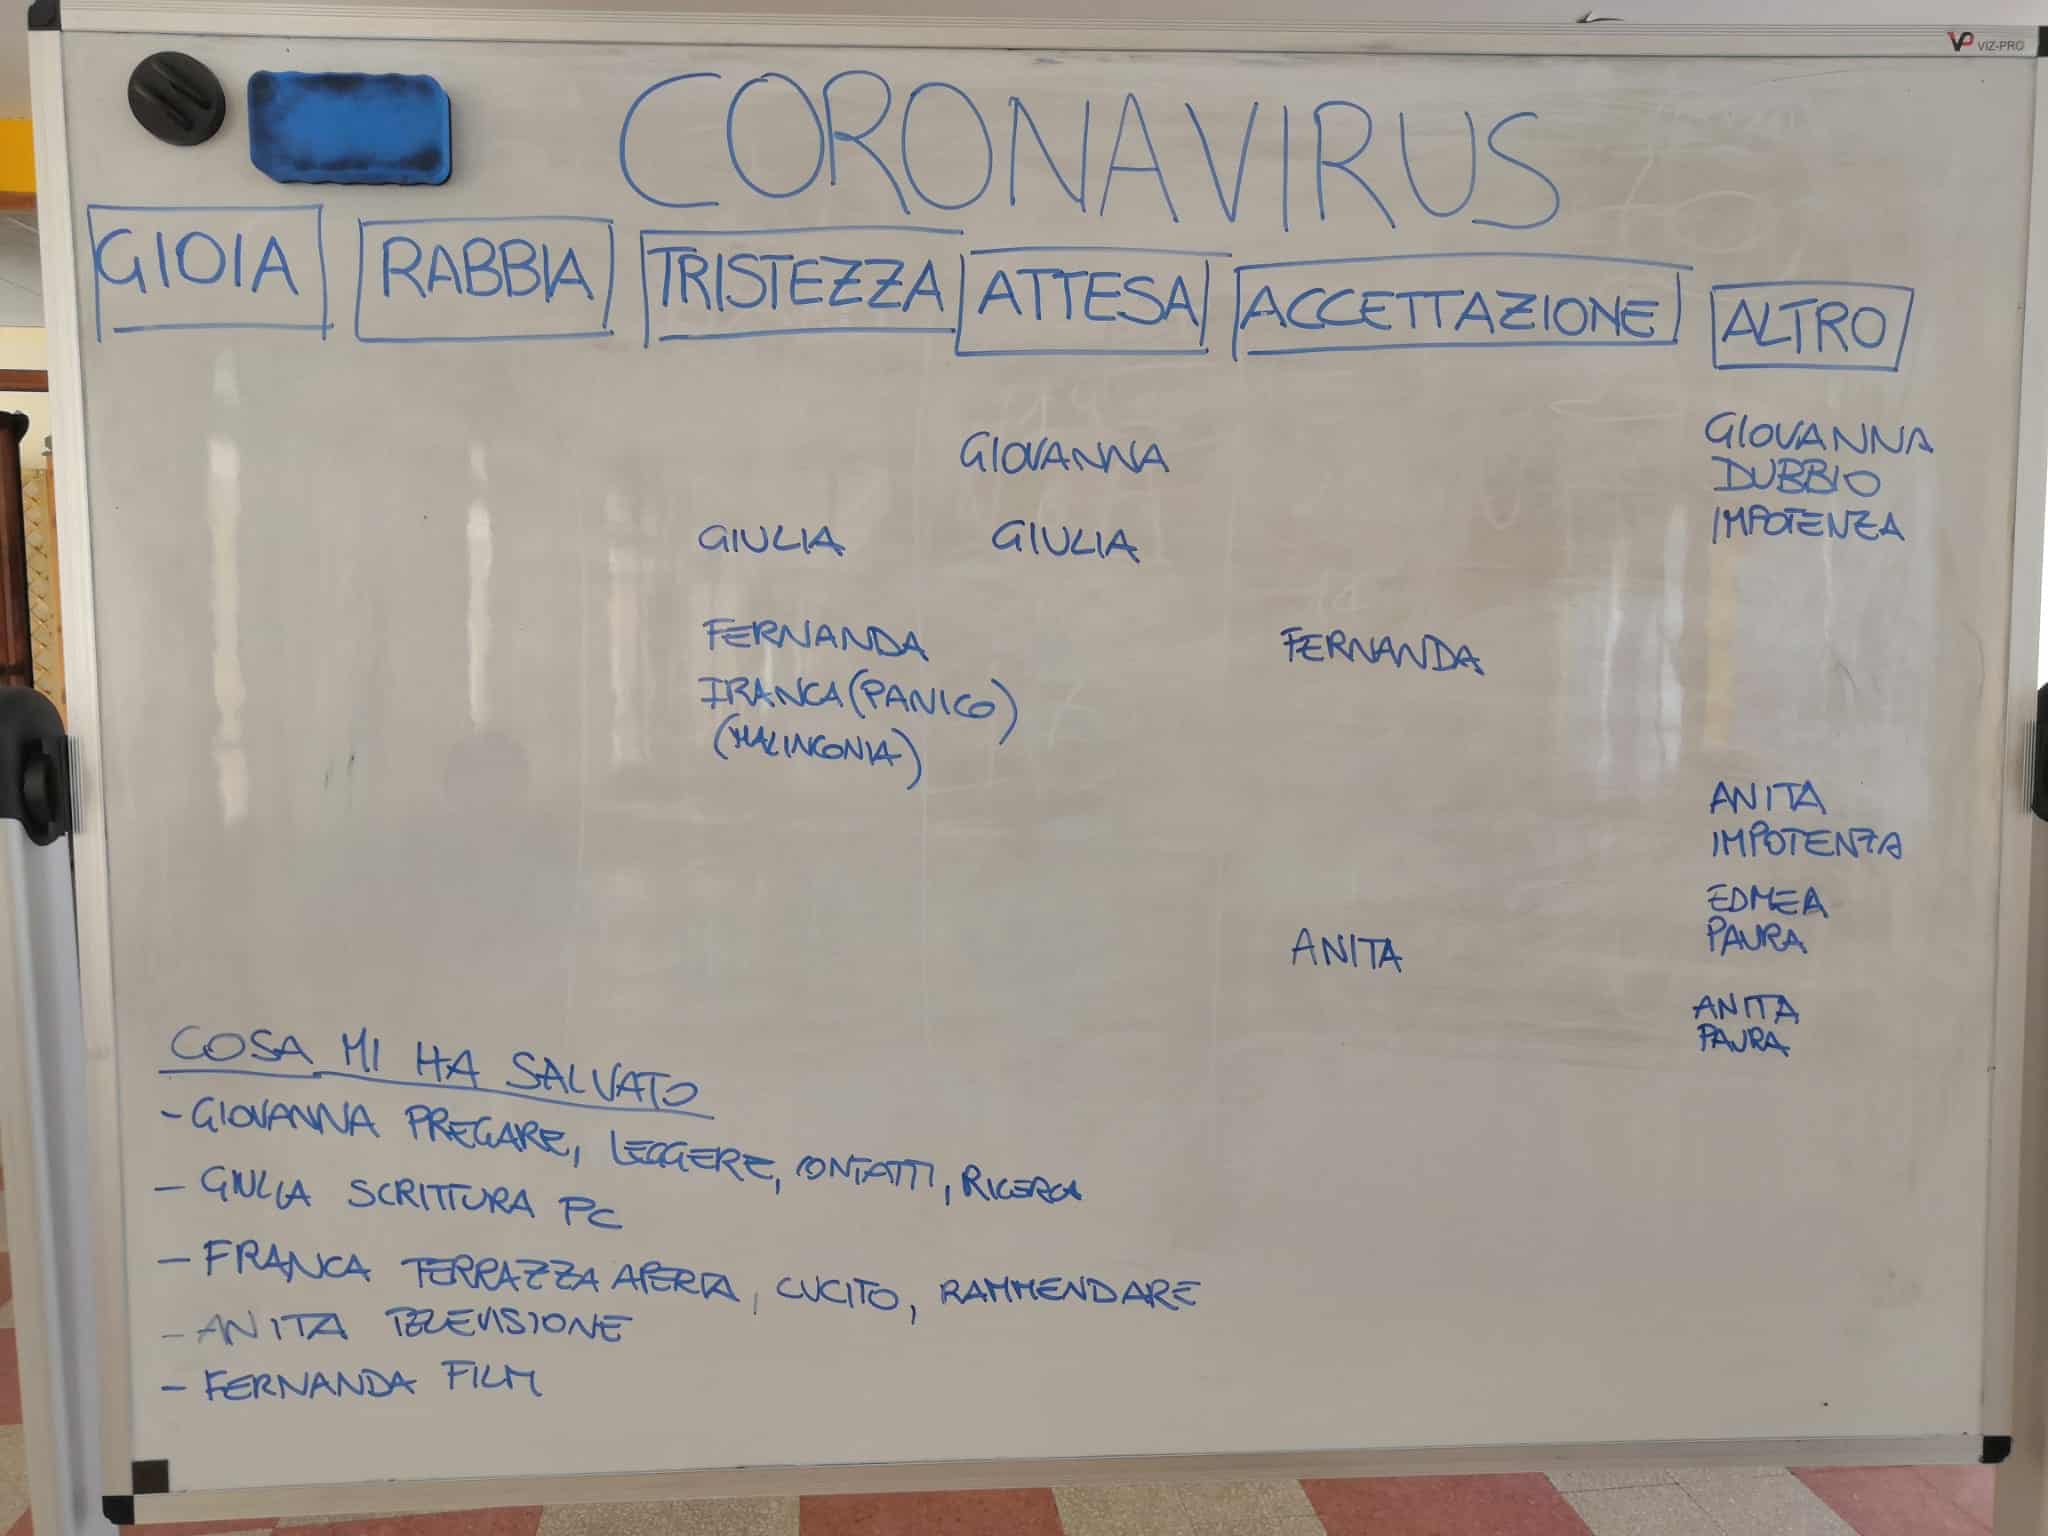 VP VIZ-PRO
CORONAVIRUS
GIOIA RABBIA TRISTEZZA ATTESA ACCETTAZIONE ALTRO
GIOVANNA GIOVANNA
DUBBIO
IMPOTENZA
GIULIA GIULIA
FERNANDA FERNANDA
FRANCA (PANICO)
(MALINCONIA)
ANITA
IMPOTENZA
EDMEA
PAURA
ANITA
ANITA
PAURA
COSA MI HA SALVATO
- GIOVANNA PREGARE, LEGGERE, CONTATTI, RICERCA
- GIULIA SCRITTURA PC
- FRANCA TERRAZZA APERTA, CUCITO, RAMMENDARE
- ANITA TELEVISIONE
- FERNANDA FILM